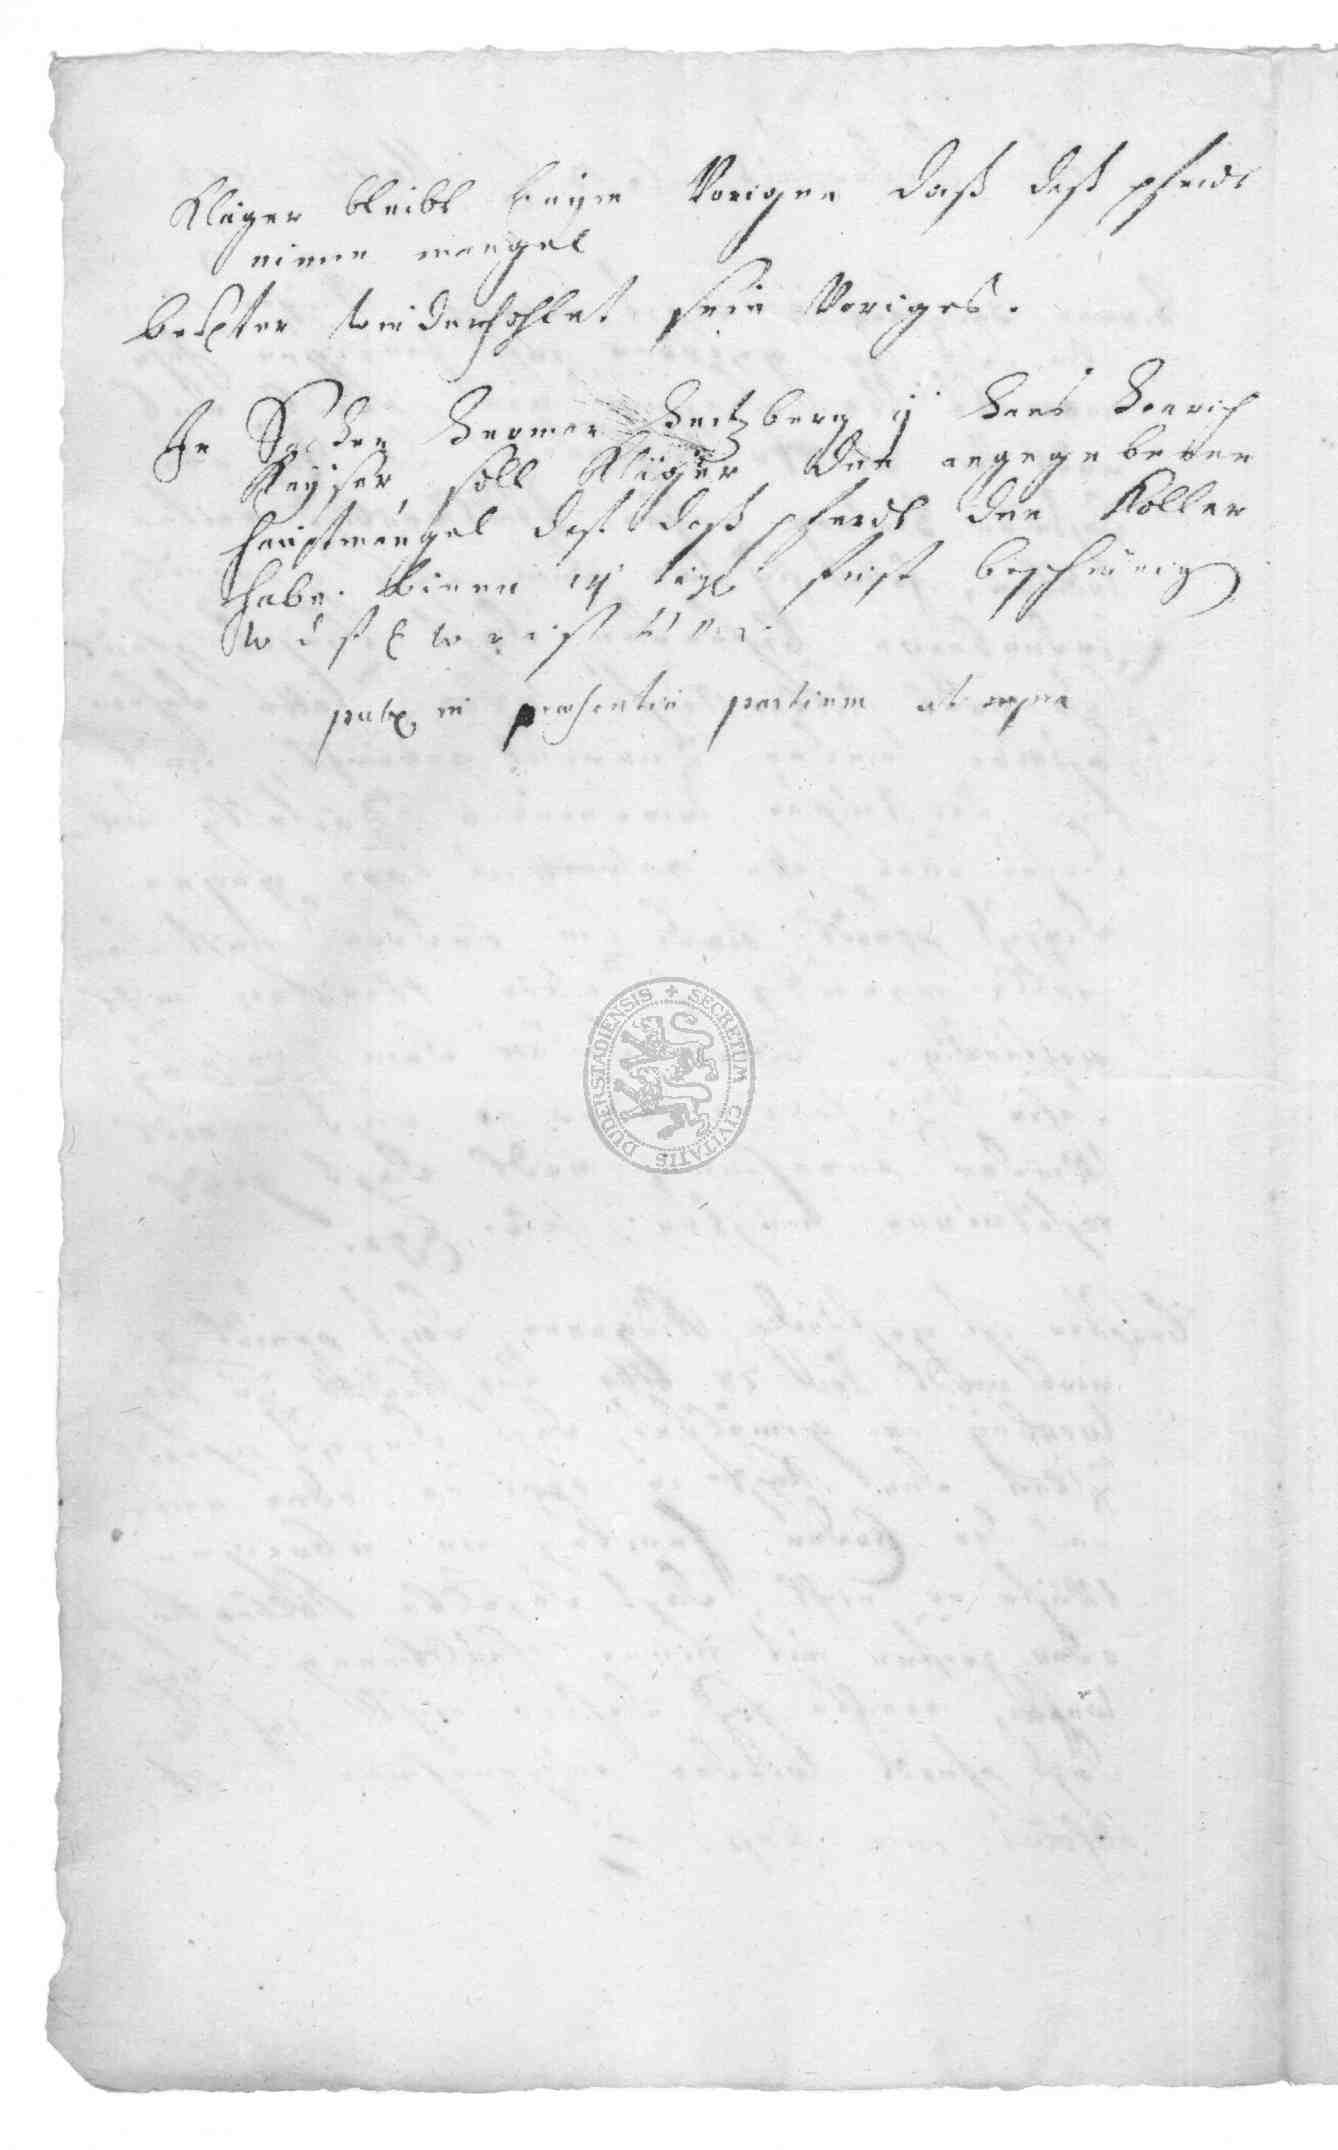 Kläger bleibt beym Vorigen daß deß pferdt
einen mangel
bekl<sup>ter</sup> wiederhohlet sein Voriges.
In Sachen Herman Hertzberg Hans Henrich
Keyser, soll Kläger den angegebenen
hauptmangel daß deß pferdt den Koller
habe. binnen 14 frist bescheinig
publ. in præsentia partium ut supra
SECRETUM CIVITATIS DUDERSTADIENSIS